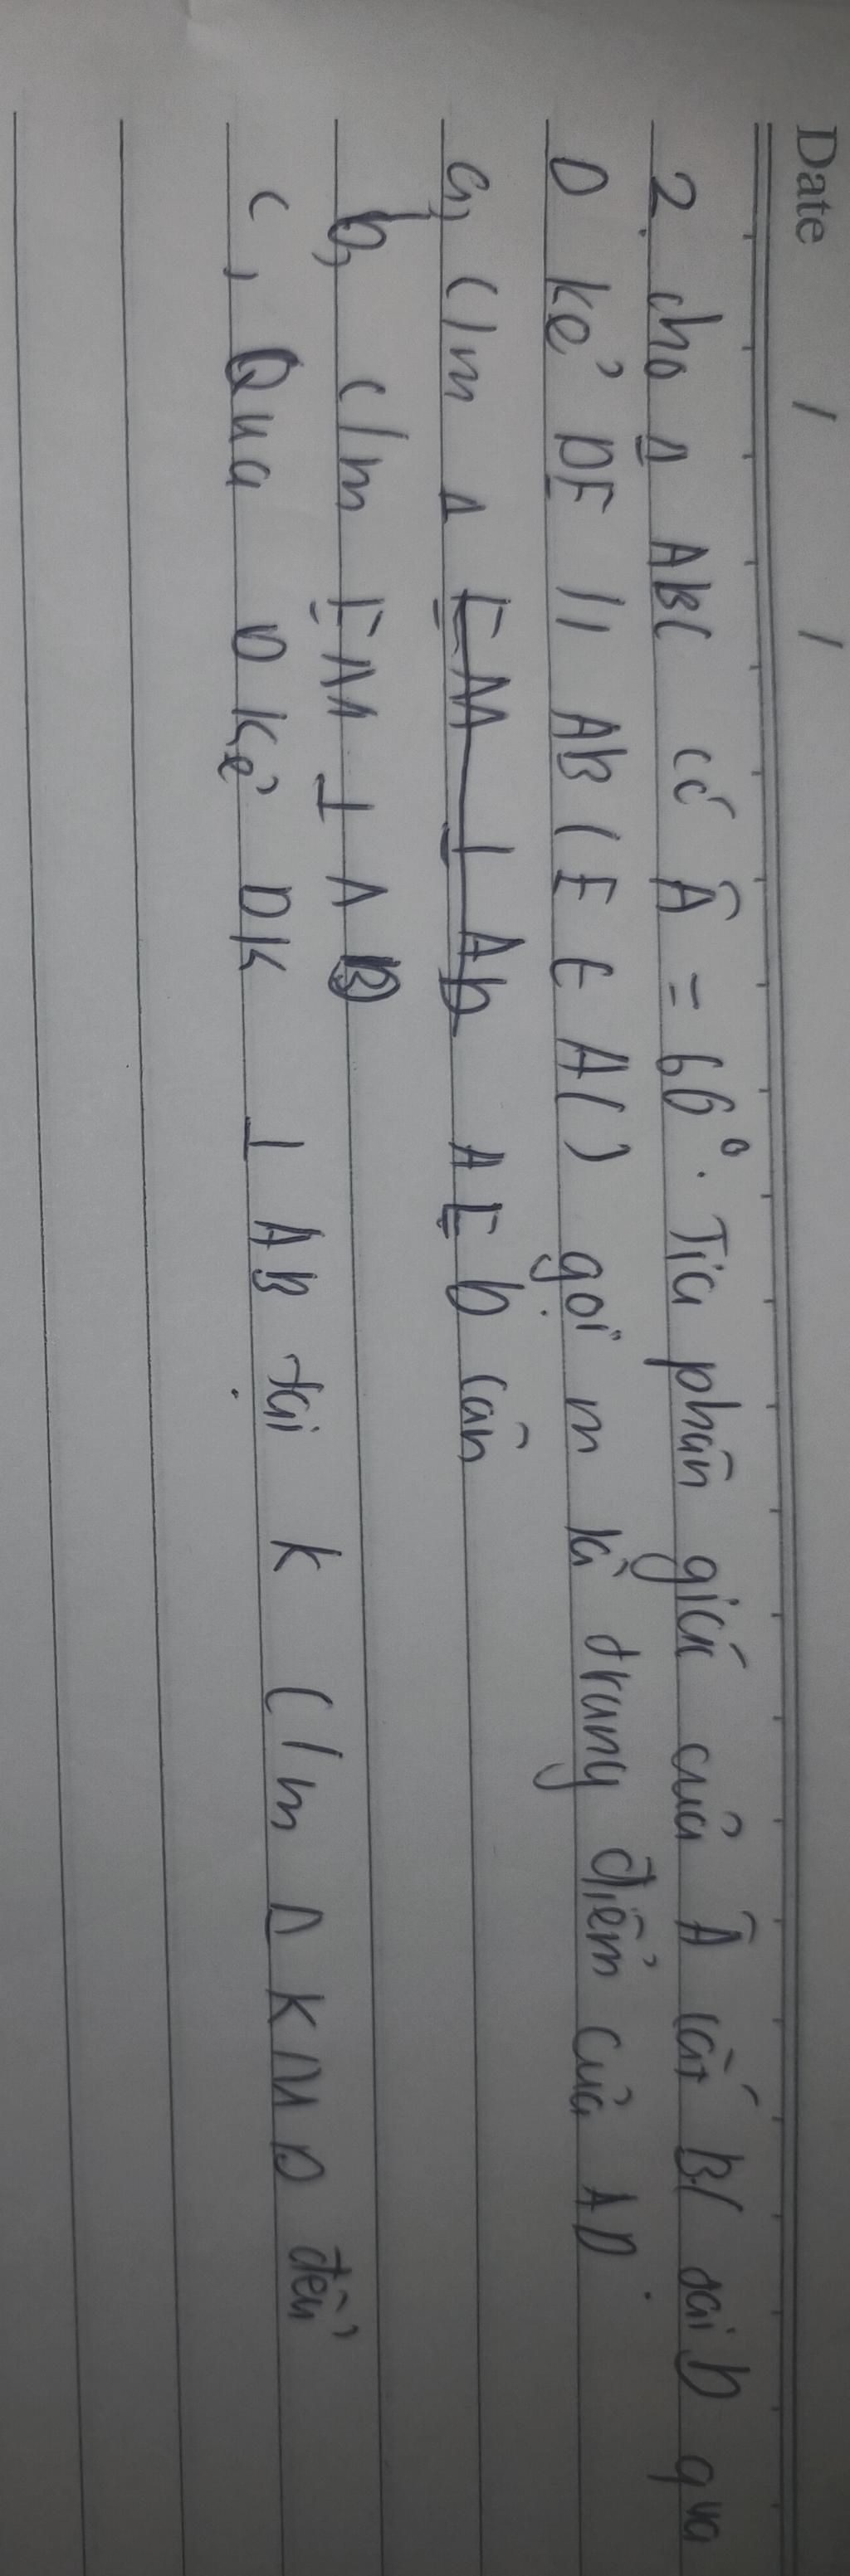 Date / /
2. cho Δ ABC có Â = 60°. Tia phân giác của Â cắt BC tại D qua
D kẻ DE // AB (E ∈ AC) gọi m là trung điểm của AD.
a, C/m Δ EM ⊥ AD AED cân
b, C/m EM ⊥ AD
c, Qua D Kẻ DK ⊥ AB tại K C/m Δ KMD đều